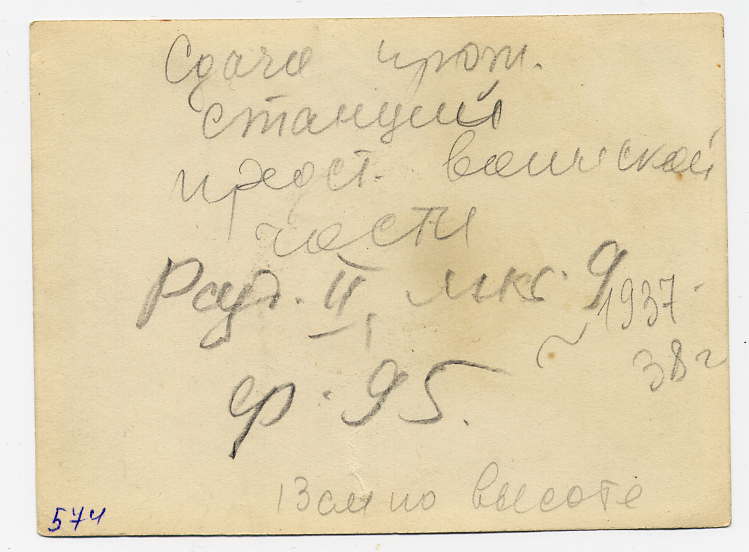 Сдача прож.
станций
предст. воинской
части
Разд. II, мкс. 9
~ 1937-
38 г
ф. 95.
13 см по высоте
574